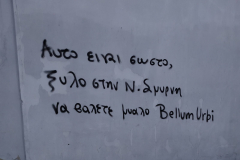 Αυτο ειναι σωστο,
ξυλο στην Ν. Σμυρνη
να βαλετε μυαλο Bellum Urbi